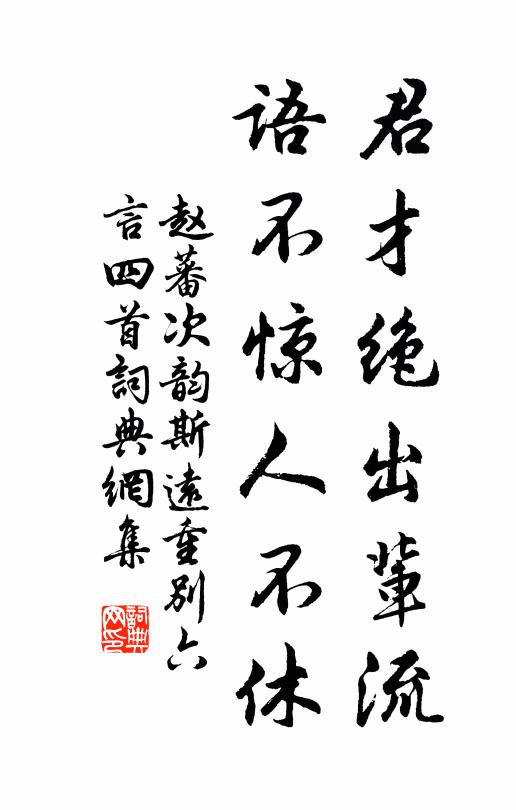 君才绝出輩流
语不惊人不休
赵蕃次韵斯遠重别六
言四首詞典網集
詞典网印